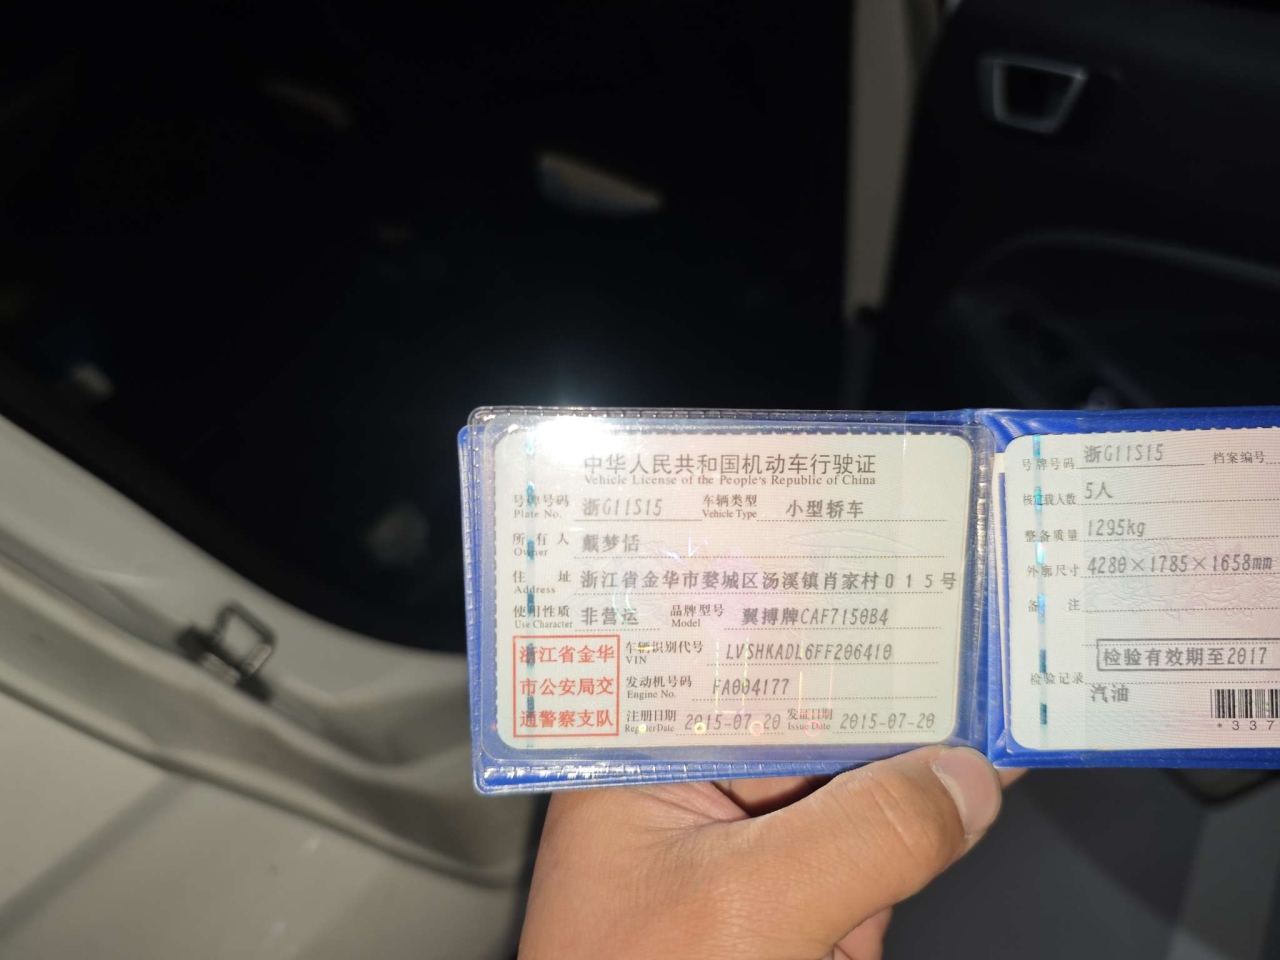 中华人民共和国机动车行驶证
Vehicle License of the People's Republic of China
号牌号码 浙G11S15 车辆类型 小型轿车
Plate No. Vehicle Type
所有人 戴梦恬
Owner
住址 浙江省金华市婺城区汤溪镇肖家村015号
Address
使用性质 非营运 品牌型号 翼搏牌CAF7150B4
Use Character Model
浙江省金华
市公安局交
通警察支队
车辆识别代号 LVSHKADL6FF206410
VIN
发动机号码 FA004177
Engine No.
注册日期 2015-07-20 发证日期 2015-07-20
Register Date Issue Date
号牌号码 浙G11S15 档案编号
核定载人数 5人
整备质量 1295kg
外廓尺寸 4280×1785×1658mm
备注
检验有效期至2017
检验记录
汽油
*337